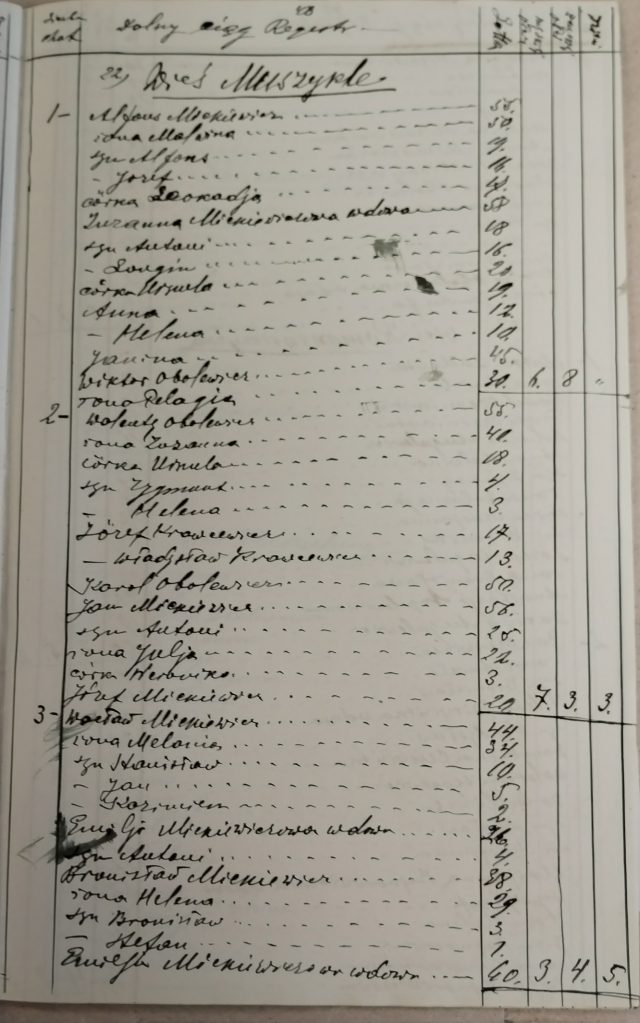 48
Dalszy ciąg Regestr.
Lata
22) Wieś Muszykle.
1- Alfons Mickiewicz 55.
żona Malwina 50.
syn Alfons
- Józef
córka Leokadja
Zuzanna Mickiewiczowa wdowa
syn Antoni 18
- Longin 16.
córka Urszula 20
Anna 19.
- Helena 12.
Janina 10.
Wiktor Obolewicz 45.
żona Pelagia 30. 6. 8 "
2- Walenty Obolewicz 55.
żona Zuzanna 40.
córka Urszula 18.
syn Zygmunt 4.
- Helena 3.
Józef Krawcewicz 17.
- Władysław Krawcewicz 13.
Karol Obolewicz 50.
Jan Mickiewicz 56.
syn Antoni 25.
żona Julja 22.
córka 3.
Józef Mickiewicz 20. 7. 3. 3.
3- Wacław Mickiewicz 44.
żona Melania 34.
syn Stanisław 10.
- Jan 5.
- Kazimierz 2.
Emilja Mickiewiczowa wdowa
syn Antoni 4.
Bronisław Mickiewicz 38.
żona Helena 29.
syn Bronisław 3.
- Stefan 1.
Emilja Mickiewiczowa wdowa 60. 3. 4. 5.